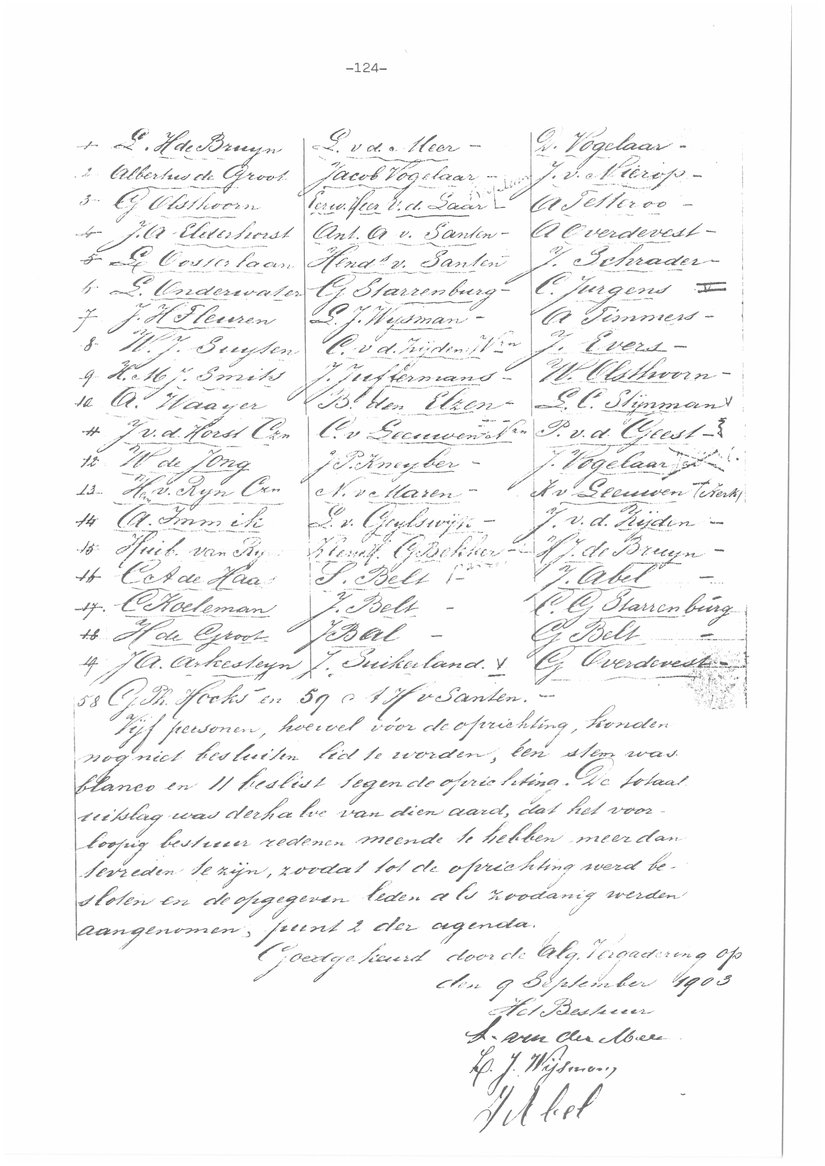 -124-
1 L. H de Bruyn L. v d. Meer - Q. Vogelaar -
2 Albertus de Groot Jacob Vogelaar - J. v. Nierop -
3 G Olsthoorn Eerw. Heer v. d. Laar - A Tetteroo -
4 J. A Elderhorst Ant. A v. Santen - A Overdevest -
5 L. Oosterlaan Hend. v. Santen J. Schrader -
6 L. Onderwater G Starrenburg - C. Jurgens
7 J. H Fleuren L. J. Wysman - A Timmers -
8 W. J. Suyten C. v d. Zijden J. Evers -
9 H. M. J. Smits J. Juffermans - W. Olsthoorn -
10 A. Waayer B. den Elzen - L. C. Stijnman
11 J v. d. Horst Czn C. v Leeuwen P. v. d. Geest -
12 W de Jong J P. Kneyber - J. Vogelaar
13 v. Ryn Czn N. v Maren - A v Leeuwen (Kerk)
14 A. Immik L. v. Geylswijk - J. v. d. Zijden -
15 Huib. van Ry G Bekker - H J. de Bruyn -
16 C A de Haa S. Belt J. Abel -
17 C Koeleman J. Belt - C. G Starrenburg
18 H de Groot J Bal - G Belt -
19 J. A. Arkesteyn J. Suikerland. G Overdevest -
58 G Ph. Hocks en 59 A H v Santen. -
Vijf personen, hoewel vóór de oprichting, konden
nog niet besluiten lid te worden, een stem was
blanco en 11 beslist tegen de oprichting. De totaal
uitslag was derhalve van dien aard, dat het voor-
loopig bestuur redenen meende te hebben meer dan
tevreden te zijn, zoodat tot de oprichting werd be-
sloten en de opgegeven leden als zoodanig werden
aangenomen, punt 2 der agenda.
Goedgekeurd door de Alg. Vergadering op
den 9 September 1903
Het Bestuur
L. van der Meer
L. J. Wijsman,
J Abel